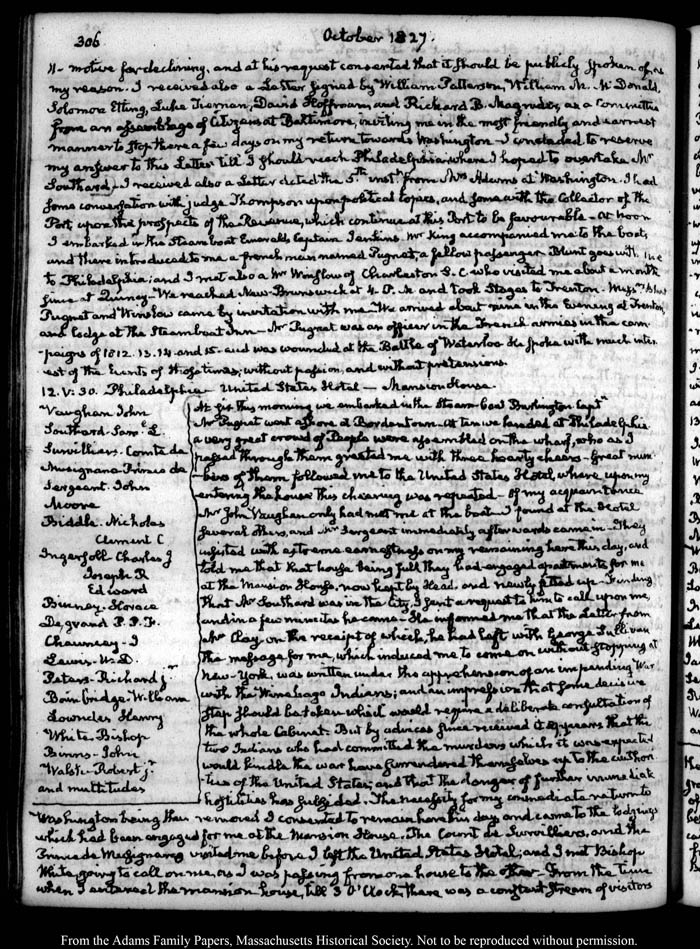 306
October 1827.
11- motive for declining, and at his request consented that it should be publicly spoken of as
my reason. I received also a Letter signed by William Patterson, William M. McDonald,
Solomon Etting, Luke Tiernan, David Hoffman, and Richard B. Magruder, as a Committee
from an assemblage of Citizens at Baltimore, inviting me in the most friendly and earnest
manner to stop there a few days on my return towards Washington. I concluded to reserve
my answer to this Letter till I should reach Philadelphia where I hoped to overtake Mr
Southard. I received also a Letter dated the 5th inst from Mrs Adams at Washington. I had
some conversation with judge Thompson upon political topics, and some with the Collector of the
Port upon the prospects of the Revenue, which continue at this Port to be favourable- At noon
I embarked in the Steamboat Emerald, Captain Jenkins. Mr King accompanied me to the boat,
and there introduced to me a french man named Pugnet, a fellow passenger. Blunt goes with me
to Philadelphia; and I met also a Mr Winslow of Charleston S. C. who visited me about a month
since at Quincy- We reached New-Brunswick at 4. P. M and took Stages to Trenton. Messrs Blunt
Pugnet and Winslow came by invitation with me- We arrived about nine in the Evening at Trenton,
and lodge at the Steamboat Inn- Mr Pugnet was an officer in the French armies in the cam-
-paigns of 1812. 13. 14 and 15. and was wounded at the Battle of Waterloo He spoke with much inter-
est of the Events of those times; without passion, and without pretensions.
12. V: 30. Philadelphia- United States Hotel — Mansion House.
Vaughan John
Southard- Saml L.
Survilliers- Comte de
Musignano- Prince de
Sergeant. John
Moore
Biddle. Nicholas
Clement C
Ingersoll Charles J
Joseph R
Edward
Binney- Horace
Degrand P. P. F.
Chauncey- I
Lewis- W. D.
Peters- Richard jr
Bainbridge- William
Lowndes Henry
White- Bishop
Binns- John
Walsh- Robert jr
and multitudes
At six this morning we embarked in the Steam-boat Burlington Captn
Mr Pugnet went ashore at Bordentown- At ten we landed at Philadelphia
a very great crowd of People were assembled on the wharf, who as I
passed through them greeted me with three hearty cheers- Great num-
bers of them followed me to the United States Hotel, where upon my
entering the house this cheering was repeated- Of my acquaintance
Mr John Vaughan only had met me at the boat- I found at the Hotel
several others, and Mr Sergeant immediately afterwards came in- They
insisted with extreme earnestness on my remaining here this day, and
told me that that house being full they had engaged apartments for me
at the Mansion House, now kept by Head, and newly fitted up- Finding
that Mr Southard was in the City, I sent a request to him to call upon me,
and in a few minutes he came- He informed me that the Letter from
Mr Clay, on the receipt of which, he had left with George Sullivan
the message for me, which induced me to come on without stopping at
New-York. was written under the apprehension of an impending War
with the Winnebago Indians; and an impression that some decisive
step should be taken which would require a deliberate consultation of
the whole Cabinet. But by advices since received it appears that the
two Indians who had committed the murders which it was expected
would kindle the war have surrendered themselves up to the authori-
ties of the United States; and that the danger of further immediate
hostilities has subsided. The necessity for my immediate return to
Washington being thus removed I consented to remain here this day and came to the lodgings
which had been engaged for me at the Mansion House. The Count de Survilliers, and the
Prince de Musignano visited me before I left the United States Hotel; and I met Bishop
White, going to call on me, as I was passing from one house to the other- From the time
when I entered the mansion house, till 3 O'Clock, there was a constant stream of visitors
From the Adams Family Papers, Massachusetts Historical Society. Not to be reproduced without permission.